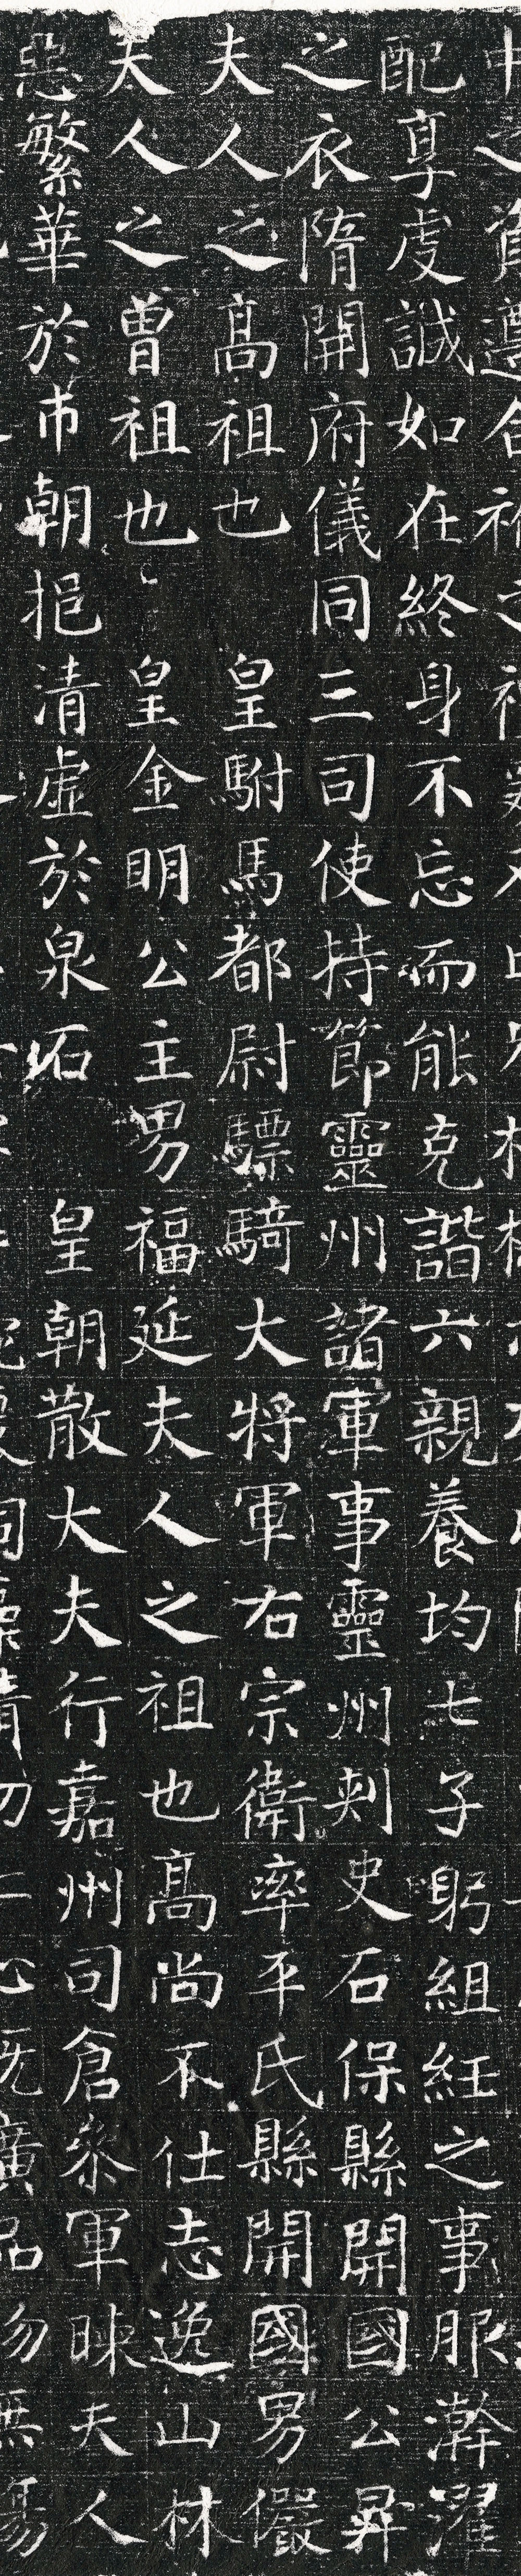 配享虔誠如在終身不忘而能克諧六親養均七子躬組紝之事服澣濯
之衣隋開府儀同三司使持節靈州諸軍事靈州刺史石保縣開國公昇
夫人之髙祖也 皇駙馬都尉驃騎大將軍右宗衛率平氏縣開國男儼
夫人之曾祖也 皇金明公主男福延夫人之祖也髙尚不仕志逸山林
惡繁華於市朝挹清虛於泉石 皇朝散大夫行嘉州司倉叅軍暕夫人